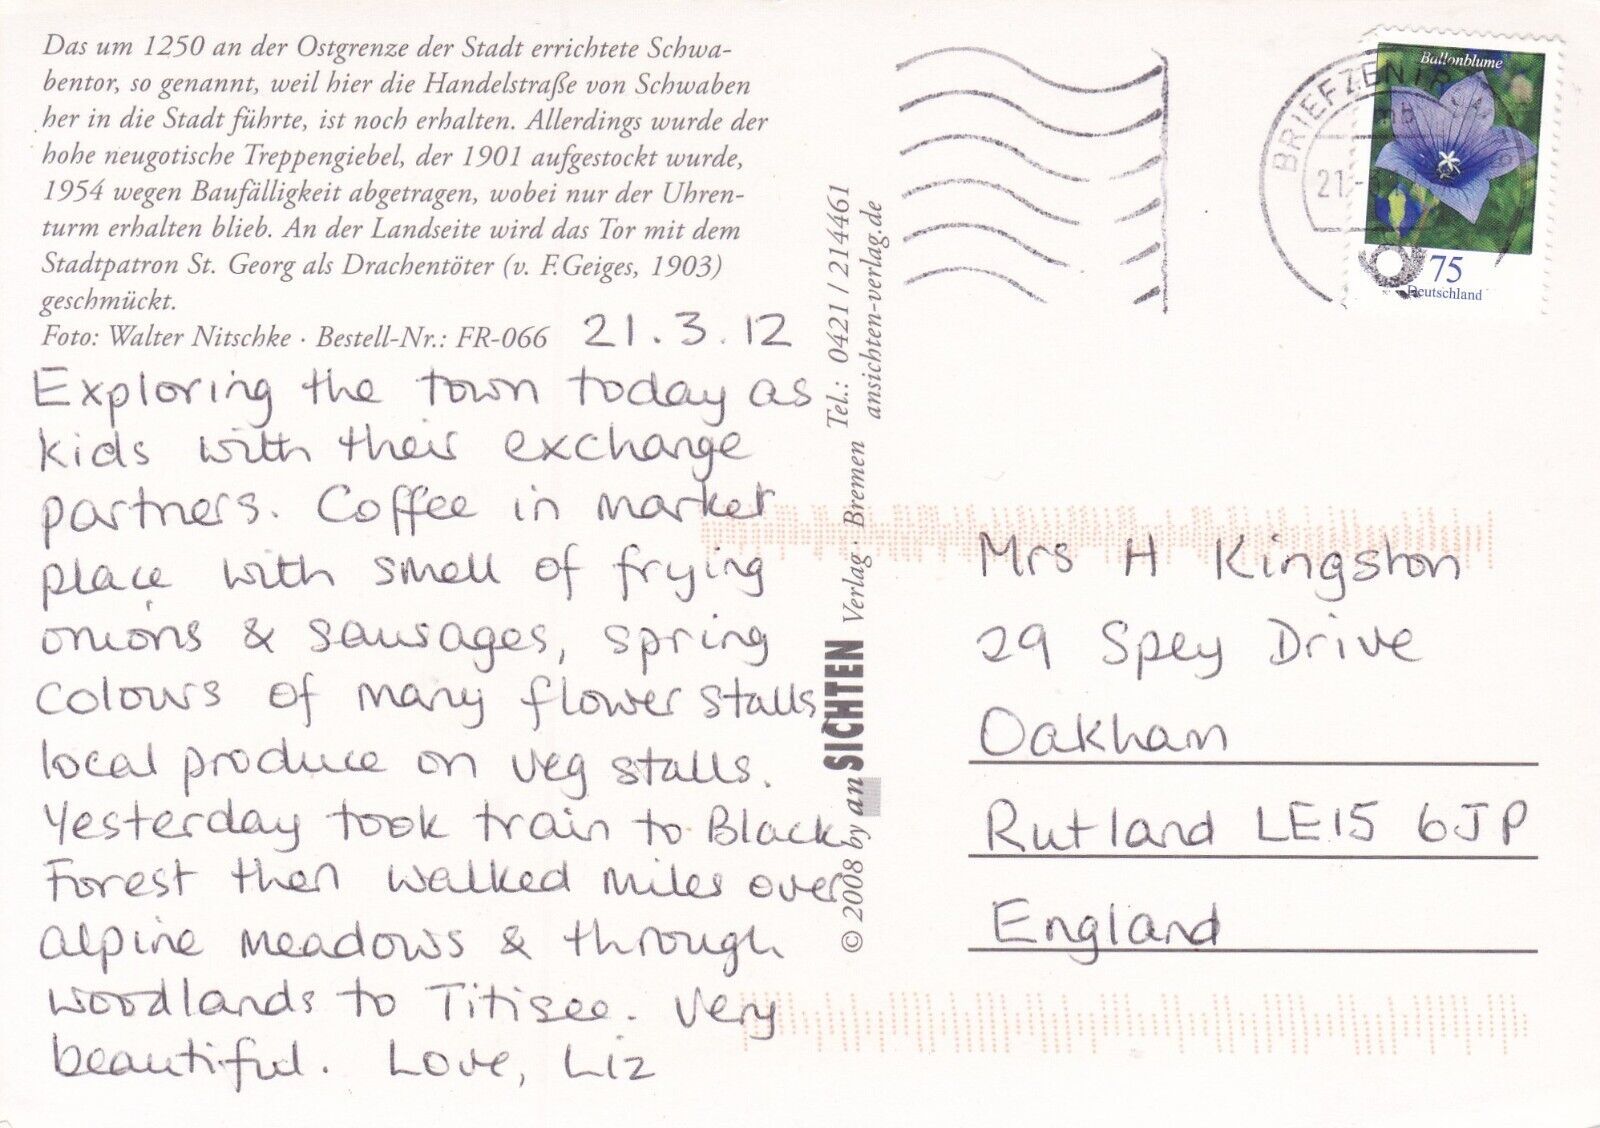 Das um 1250 an der Ostgrenze der Stadt errichtete Schwa-
bentor, so genannt, weil hier die Handelstraße von Schwaben
her in die Stadt führte, ist noch erhalten. Allerdings wurde der
hohe neugotische Treppengiebel, der 1901 aufgestockt wurde,
1954 wegen Baufälligkeit abgetragen, wobei nur der Uhren-
turm erhalten blieb. An der Landseite wird das Tor mit dem
Stadtpatron St. Georg als Drachentöter (v. F.Geiges, 1903)
geschmückt.
Foto: Walter Nitschke · Bestell-Nr.: FR-066
21.3.12
Exploring the town today as
kids with their exchange
partners. Coffee in market
place with smell of frying
onions & sausages, spring
colours of many flower stalls
local produce on veg stalls.
Yesterday took train to Black
Forest then walked miles over
alpine meadows & through
woodlands to Titisee. Very
beautiful. Love, Liz
© 2008 by anSICHTEN Verlag · Bremen Tel.: 0421 / 214461
ansichten-verlag.de
BRIEFZENTRUM
21.
Ballonblume
75
Deutschland
Mrs H Kingston
29 Spey Drive
Oakham
Rutland LE15 6JP
England